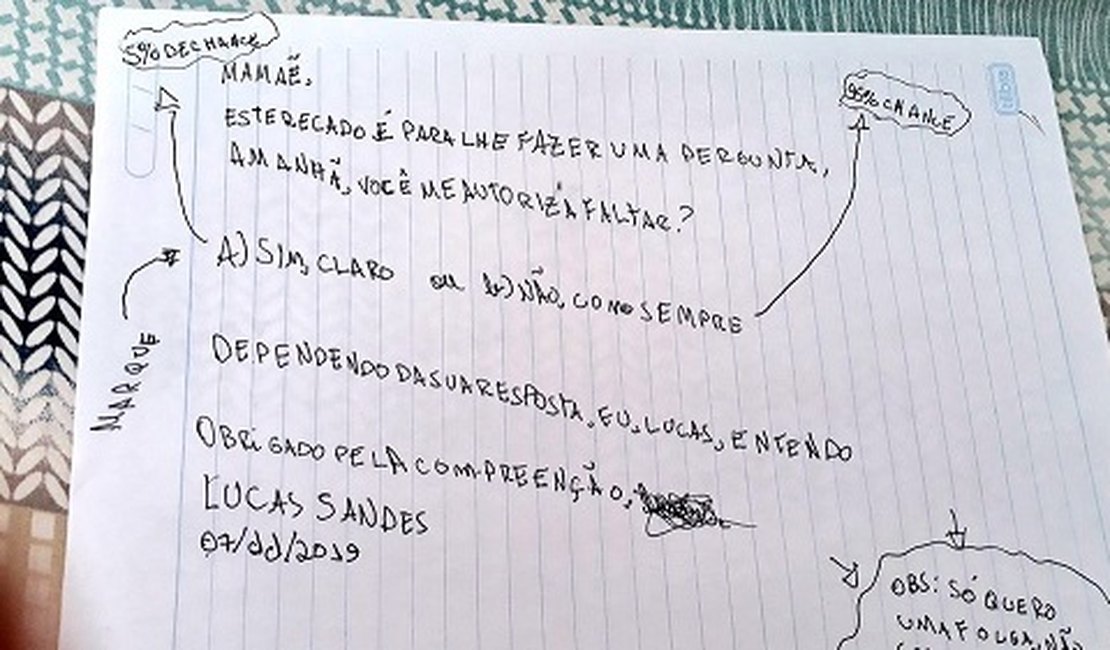 5% DE CHANCE
MAMAẼ,
95% CHANCE
ESTE RECADO É PARA LHE FAZER UMA PERGUNTA,
AMANHÃ, VOCÊ ME AUTORIZA FALTAR?
A) SIM, CLARO ou b) NÃO, COMO SEMPRE
MARQUE
DEPENDENDO DA SUA RESPOSTA, EU, LUCAS, ENTENDO
OBRIGADO PELA COMPREENÇÃO,
LUCAS SANDES
07/11/2019
OBS: SÓ QUERO
UMA FOLGA, NÃO